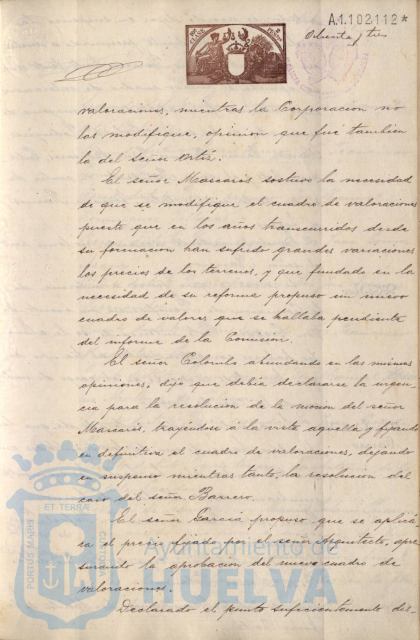 A.1.102.112*
Ochenta y tres
valoraciones, mientras la Corporacion no
las modifique, opinion que fué tambien
la del Señor Ortiz.
El señor Mascarós sostuvo la necesidad
de que se modifique el cuadro de valoraciones
puesto que en los años transcurridos desde
su formacion han sufrido grandes variaciones
los precios de los terrenos, y que fundado en la
necesidad de su reforma propuso un nuevo
cuadro de valores que se hallaba pendiente
del informe de la Comision.
El señor abundando en las mismas
opiniones, dijo que debia declararse la urgen-
cia para la resolucion de la mocion del señor
Mascarós, trayéndose á la vista aquella y fijando
en definitiva el cuadro de valoraciones, dejando
en suspenso mientras tanto, la resolucion del
caso del señor Barrero.
El señor Garcia propuso que se aplica-
ra el precio fijado por el señor Arquitecto, apre-
surando la aprobacion del nuevo cuadro de
valoraciones.
Declarado el punto suficientemente dis-
PORTUS MARIS
ET TERRÆ
Ayuntamiento de
HUELVA